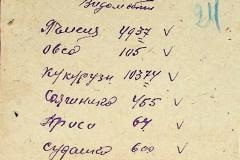 Видомости
24
Ячмень 4957 V
Овса 105 V
Кукурузи 10374 V
Сояшника 465 V
Проса 64 V
Суданка 600 V